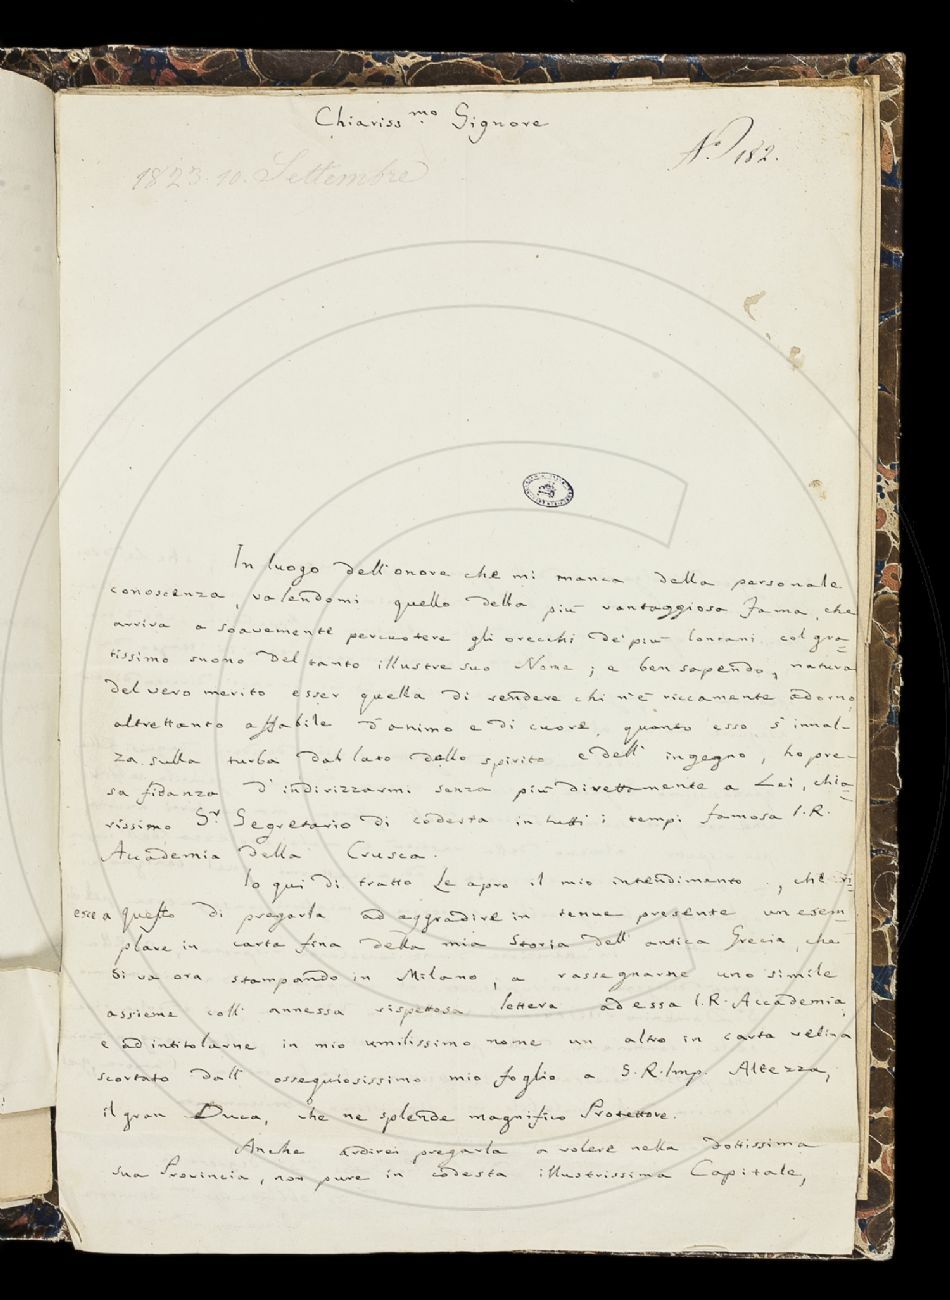 Chiariss.mo Signore
N.o 182.
1823. 10. Settembre
In luogo dell'onore che mi manca della personale
conoscenza, valendomi quello della più vantaggiosa fama, che
arriva a soavemente percuotere gli orecchi de' più lontani col gra=
tissimo suono del tanto illustre suo Nome; e ben sapendo, natura
del vero merito esser quella di rendere chi n'è riccamente adorno,
altrettanto affabile d'animo e di cuore, quanto esso s'innal-
za sulla turba dal lato dello spirito e dell' ingegno, ho pre-
sa fidanza d'indirizzarmi senza più direttamente a Lei, chia=
rissimo Sr. Segretario di codesta in tutti i tempi famosa I. R.
Accademia della Crusca.
Io qui di tratto Le apro il mio intendimento, che ri=
esce a questo di pregarla ad aggradire in tenue presente un esem=
plare in carta fina della mia Storia dell' antica Grecia, che
si va ora stampando in Milano, a rassegnarne uno simile
assieme coll' annessa rispettosa lettera ad essa I. R. Accademia,
e ad intitolarne in mio umilissimo nome un altro in carta velina
scortato dall' ossequiosissimo mio foglio a S. R. Imp. Altezza,
il gran Duca, che ne splende magnifico Protettore.
Anche ardirei pregarla a volere nella dottissima
sua Provincia, non pure in codesta illustrissima Capitale,